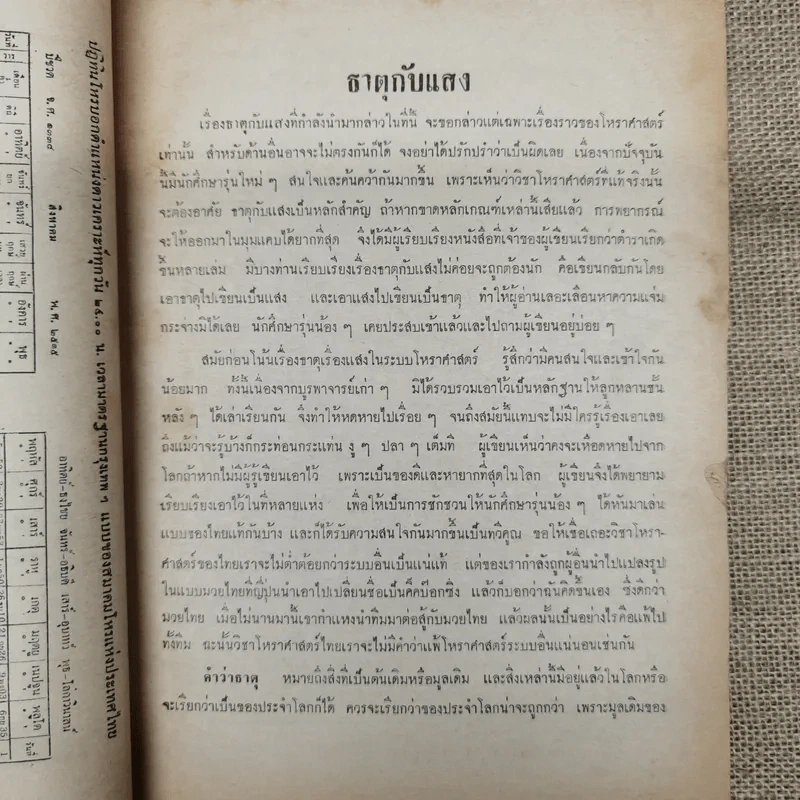 ธาตุกับแสง
เรื่องธาตุกับแสงที่กำลังนำมากล่าวในที่นี้ จะขอกล่าวแต่เฉพาะเรื่องราวของโหราศาสตร์
เท่านั้น สำหรับด้านอื่นอาจจะไม่ตรงกันก็ได้ จงอย่าได้ปรักปรำว่าเป็นผิดเลย เนื่องจากปัจจุบัน
นี้มีนักศึกษารุ่นใหม่ ๆ สนใจและค้นคว้ากันมากขึ้น เพราะเห็นว่าวิชาโหราศาสตร์ที่แท้จริงนั้น
จะต้องอาศัย ธาตุกับแสงเป็นหลักสำคัญ ถ้าหากขาดหลักเกณฑ์เหล่านี้เสียแล้ว การพยากรณ์
จะให้ออกมาในมุมแคบได้ยากที่สุด จึงได้มีผู้เรียบเรียงหนังสือที่เจ้าของผู้เขียนเรียกว่าตำราเกิด
ขึ้นหลายเล่ม มีบางท่านเรียบเรียงเรื่องธาตุกับแสงไม่ค่อยจะถูกต้องนัก คือเขียนกลับกันโดย
เอาธาตุไปเขียนเป็นแสง และเอาแสงไปเขียนเป็นธาตุ ทำให้ผู้อ่านเลอะเลือนหาความแจ่ม
กระจ่างมิได้เลย นักศึกษารุ่นน้อง ๆ เคยประสบเข้าแล้วและไปถามผู้เขียนอยู่บ่อย ๆ
สมัยก่อนโน้นเรื่องธาตุเรื่องแสงในระบบโหราศาสตร์ รู้สึกว่ามีคนสนใจและเข้าใจกัน
น้อยมาก ทั้งนี้เนื่องจากบูรพาจารย์เก่า ๆ มิได้รวบรวมเอาไว้เป็นหลักฐานให้ลูกหลานชั้น
หลัง ๆ ได้เล่าเรียนกัน จึงทำให้หดหายไปเรื่อย ๆ จนถึงสมัยนี้แทบจะไม่มีใครรู้เรื่องเอาเลย
ถึงแม้ว่าจะรู้บ้างก็กระท่อนกระแท่น งู ๆ ปลา ๆ เต็มที ผู้เขียนเห็นว่าคงจะเหือดหายไปจาก
โลกถ้าหากไม่มีผู้รู้เขียนเอาไว้ เพราะเป็นของดีและหายากที่สุดในโลก ผู้เขียนจึงได้พยายาม
เรียบเรียงเอาไว้ในที่หลายแห่ง เพื่อให้เป็นการชักชวนให้นักศึกษารุ่นน้อง ๆ ได้หันมาเล่น
แบบของไทยแท้กันบ้าง และก็ได้รับความสนใจกันมากขึ้นเป็นทวีคูณ ขอให้เชื่อเถอะวิชาโหรา-
ศาสตร์ของไทยเราจะไม่ต่ำต้อยกว่าระบบอื่นเป็นแน่แท้ แต่ของเรากำลังถูกผู้อื่นนำไปแปลงรูป
ในแบบมวยไทยที่ญี่ปุ่นนำเอาไปเปลี่ยนชื่อเป็นคิ๊คบ๊อกซิ่ง แล้วก็บอกว่าฉันคิดขึ้นเอง ซึ่งดีกว่า
มวยไทย เมื่อไม่นานมานี้เขากำแหงนำทีมมาต่อสู้กับมวยไทย แล้วผลนั้นเป็นอย่างไรคือแพ้ไป
ทั้งทีม ฉะนั้นวิชาโหราศาสตร์ไทยเราจะไม่มีคำว่าแพ้โหราศาสตร์ระบบอื่นแน่นอนเช่นกัน
คำว่าธาตุ หมายถึงสิ่งที่เป็นต้นเดิมหรือมูลเดิม และสิ่งเหล่านี้มีอยู่แล้วในโลกหรือ
จะเรียกว่าเป็นของประจำโลกก็ได้ ควรจะเรียกว่าของประจำโลกน่าจะถูกกว่า เพราะมูลเดิมของ
ปฏิทินโหรบอกตำแหน่งดาวเคราะห์ทุกวัน
มีชวด จ.ศ. ๑๓๓๔ สิงหาคม พ.ศ. ๒๕๑๕